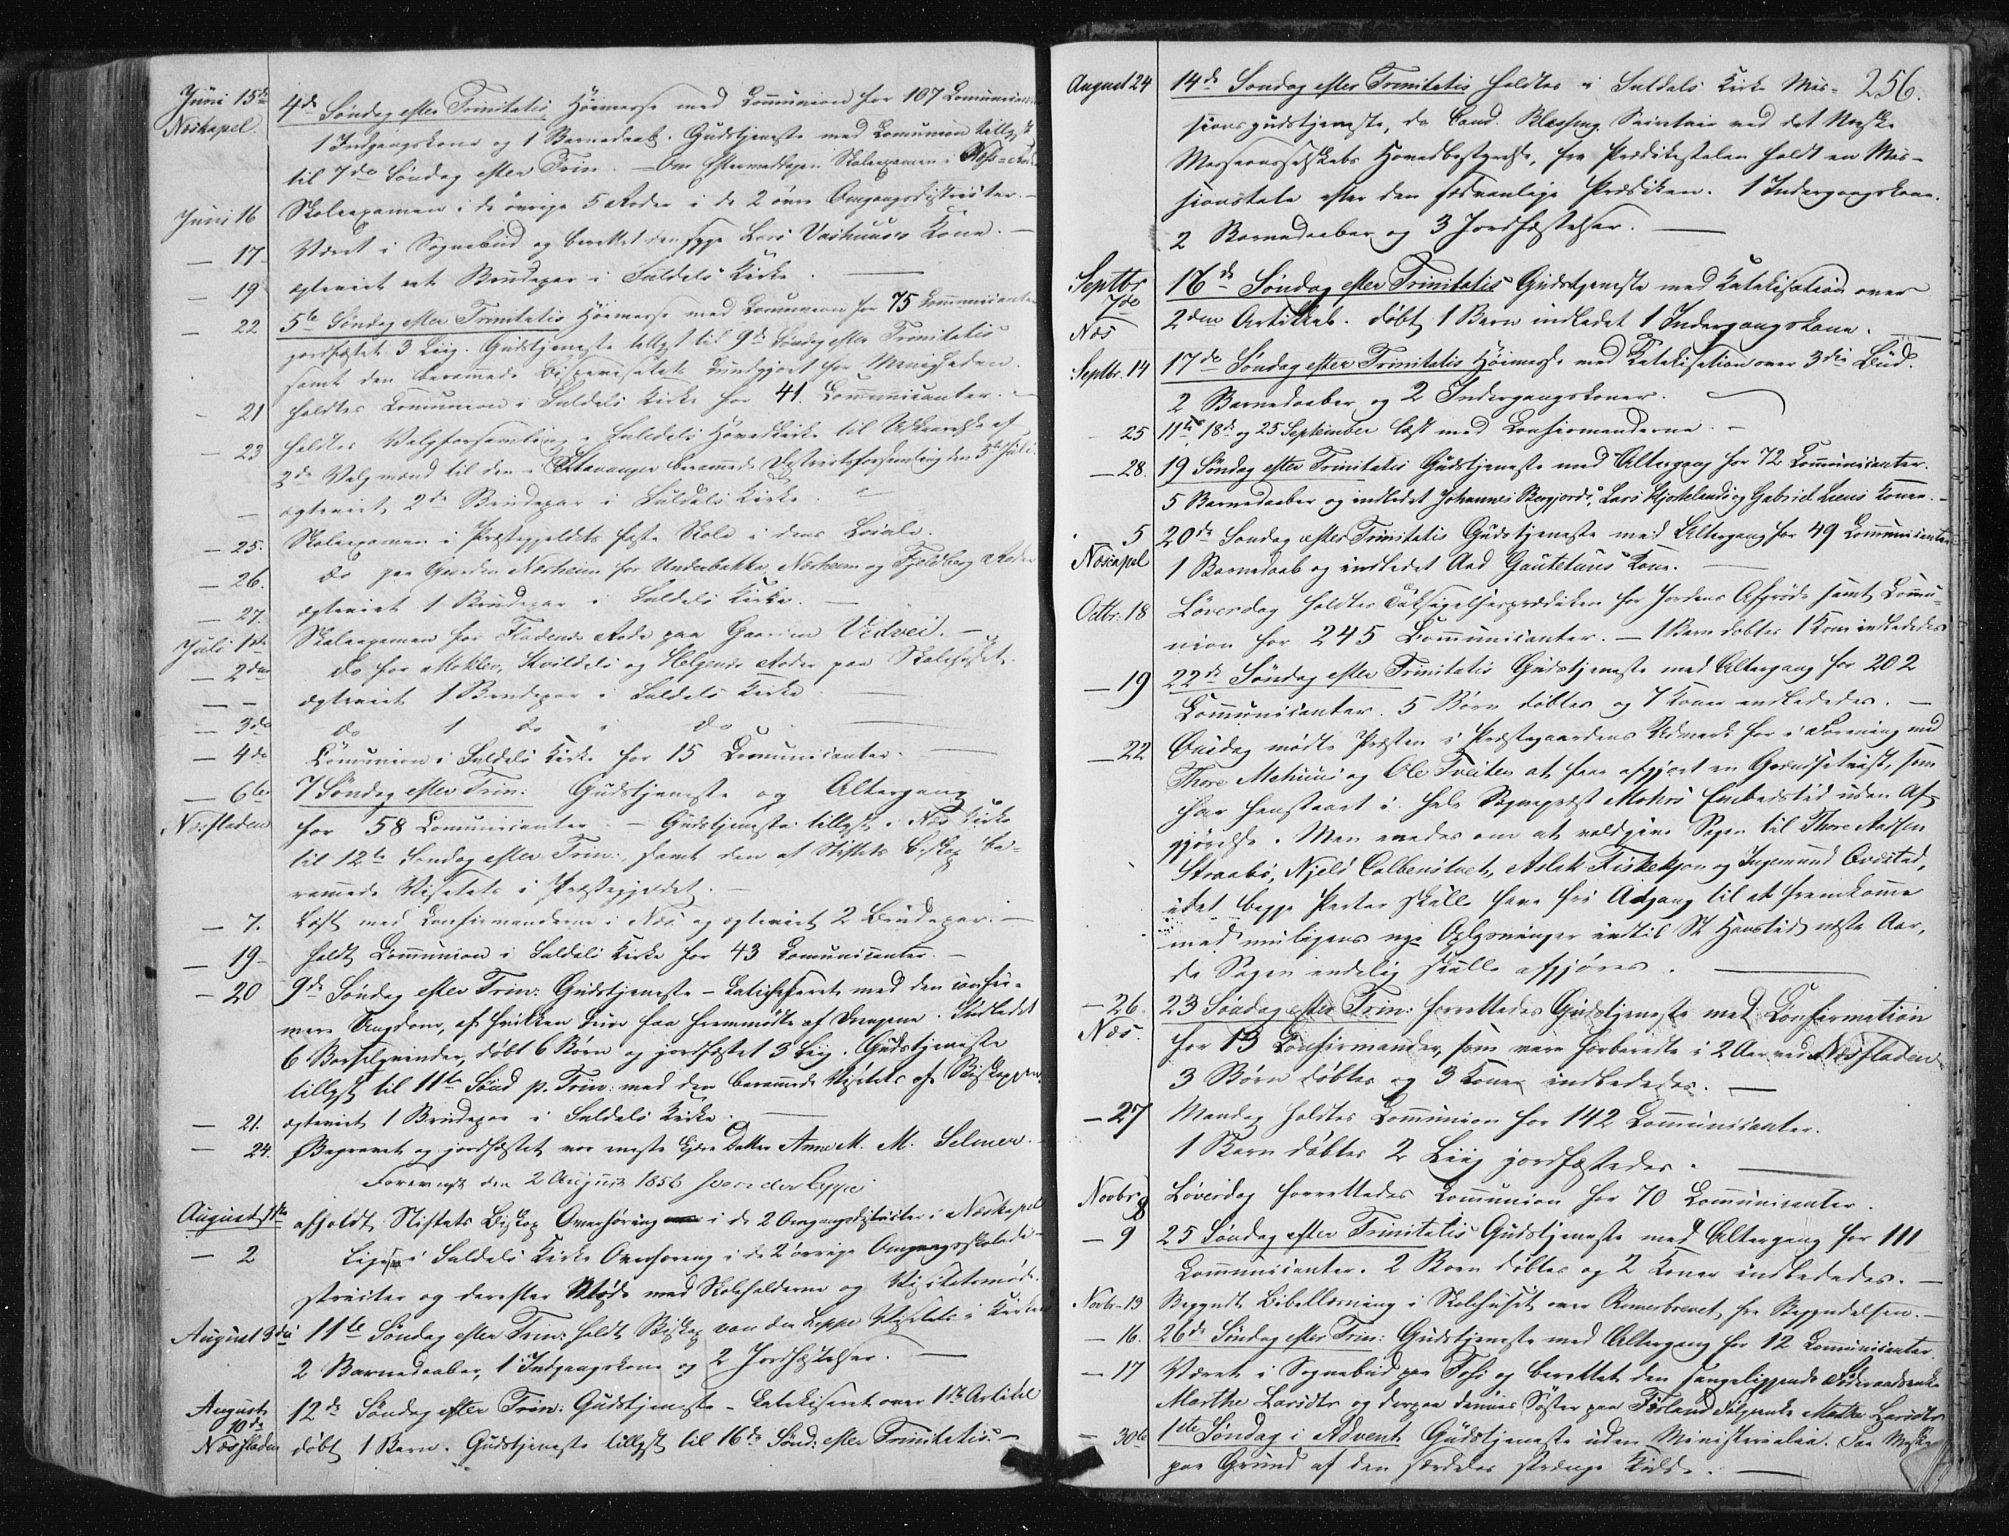 Juni 15de 4de Søndag efter Trinitatis Høimesse med Communion for 107 Communicanter
Næskapel. 1 Indgangskone og 1 Barnedaab. Gudstjeneste med Comunion tillyst
til 7de Søndag efter Trin. — Om Eftermiddagen Skoleexamen i Næs-Rode
Juni 16 Skoleexamen i de øvrige 5 Roder i de 2 øvre Omgangsdistricter. —
— 17 Været i Sognebud og berettet den syge Lars Vashuus's Kone. —
— 19 Egteviet et Brudepar i Suldals Kirke. —
— 22 5te Søndag efter Trinitatis Høimesse med Communion for 75 Communicanter
jordfæstet 3 Liig. Gudstjeneste tillyst til 9de Søndag efter Trinitatis
samt den berammede Bispevisitats kundgjort for Menigheden.
— 21 Holdtes Communion i Suldals Kirke for 41 Communicanter. —
— 23 Holdtes Valgforsamling i Suldals Hovedkirke til Udkaarelse af
3de Valgmænd til den i Stavanger berammede Districtsforsamling den 5te Juli.
— egteviet 2de Brudepar i Suldals Kirke. —
— 25. Skoleexamen i Præstegjeldets faste Skole i dens Locale.
— 26. do paa Gaarden Næsheim for Underbakke, Næsheim og Fjeldberg Roder
— 27. egteviet 1 Brudepar i Suldals Kirke. —
Juli 1ste Skoleexamen for Fladends Rode paa Gaarden Vedvei. —
— 2den do for Moklev, Kvildals og Helgenæs Roder paa Skolehuset.
— — egteviet 1 Brudepar i Suldals Kirke. —
— 3de do 1 do i do —
— 4de Communion i Suldals Kirke for 15 Communicanter. —
— 6te 7 Søndag efter Trin: Gudstjeneste og Altergang
Næsfladen for 58 Comunicanter. — Gudstjeneste tillyst i Næs Kirke
til 12te Søndag efter Trin:, samt den af Stiftets Biskop be-
rammede Visitats i Præstegjeldet. —
— 7. Læst med Confirmanderne i Næs og egteviet 2 Brudepar. —
— 19 — Holdt Communion i Suldals Kirke for 43 Comunicanter. —
— 20 9de Søndag efter Trin: Gudstjeneste — Catechiseret med den confir-
merede Ungdom, af hvilken kun faa fremmødte af Drengene. Indledet
6 Barselqvinder, døbt 6 Børn og jordfæstet 3 Liig. Gudstjeneste
tillyst til 11te Sønd p. Trin: med den berammede Visitats af Biskoppen.
— 21. egteviet 1 Brudepar i Suldals Kirke. —
— 24. Begravet og jordfæstet vor ældste kjære Datter Anne M. M. Selmer. —
Forevist den 2 August 1856 Jvon der Lippe
August 1ste afholdt Stiftets Biskop Overhøring i de 2 Omgangsdistricter i Næskapel
— 2 Ligesaa i Suldals Kirke Overhøring i de 2 øvrige Omgangsskoledi-
stricter og derefter Møde med Skoleholderne og Visitatsmøde.
August 3die 11te Søndag efter Trin: holdt Biskop von der Lippe Visitats i Kirken
2 Barnedaaber, 1 Indgangskone og 2 Jordfæstelser. —
August 10de 12te Søndag efter Trin: Gudstjeneste — Catechiseret over 1ste Artikel
Næsfladen døbt 1 Barn. Gudstjeneste tillyst til 16de Sønd: efter Trinitatis. —
256.
August 24 14de Søndag efter Trinitatis holdtes i Suldals Kirke Mis-
sionsgudstjeneste, da Cand. Blessing, Secretair ved det Norske
Missionsselskabs Hovedbestyrelse, fra Prædikestolen holdt en Mis-
sionstale efter den sædvanlige Prædiken. 1 Indgangskone.
2 Barnedaaber og 3 Jordfæstelser. —
Septbr 7de 16de Søndag efter Trinitatis Gudstjeneste med Katekisation over
Næs 2den Artikkel. døbt 1 Barn indledet 1 Indgangskone. —
Septbr. 14 17de Søndag efter Trinitatis Høimesse med Katekisation over 3die Bud.
2 Barnedaaber og 2 Indgangskoner.
— 25 11te 18de og 25 September læst med Confirmanderne. —
— 28. 19 Søndag efter Trinitatis Gudstjeneste med Altergang for 72 Communicanter.
5 Barnedaaber og indledet Johannes Bergjords, Lars Hjortelands og Gabriel Liens Koner. —
5 20de Søndag efter Trinitatis Gudstjeneste med Altergang for 49 Communicanter
Næscapel 1 Barnedaab og indledet Aad Gautetuns Kone. —
Octbr. 18 Løverdag holdtes Taksigelsesprædiken for Jordens Afgrøde samt Commu-
nion for 245 Communicanter. — 1 Barn døbtes 1 Kone indlededes
— 19 22de Søndag efter Trinitatis Gudstjeneste med Altergang for 202
Communicanter. 5 Børn døbtes og 7 Koner indlededes. —
— 22 Onsdag mødte Præsten i Præstegaardens Udmark for i Forening med
Thore Mehuus og Ole Tveiten at faae afgjort en Grændsetvist, som
har henstaaet i hele Sognepræst Mohrs Embedstid uden Af-
gjørelse. Man enedes om at voldgive Sagen til Thore Aadsen
Straabø, Njeld Colbenstvet, Aslak Fiskekjøn og Ingemund Qvæstad,
idet begge Parter skulle have fri Adgang til at fremkomme
med muligens nye Oplysninger indtil St Hanstid næste Aar,
da Sagen endelig skulle afgjøres. —
— 26 23 Søndag efter Trin: forrettedes Gudstjeneste med Confirmation
Næs. for 13 Confirmander, som vare forberedte i 2 Aar ved Næsfladen
3 Børn døbtes og 3 Koner indlededes. —
— 27 Mandag holdtes Communion for 142 Communicanter.
1 Barn døbtes 2 Liig jordfæstedes. —
Novbr 8 Løverdag forrettedes Communion for 70 Communicanter.
— 9 25 Søndag efter Trinitatis Gudstjeneste med Altergang for 111
Communicanter. 2 Børn døbtes og 2 Koner indlededes. —
Novbr 13 Begyndt Bibellæsning i Skolehuset over Romerbrevet, fra Begyndelsen. —
— 16. 26de Søndag efter Trin: Gudstjeneste med Altergang for 12 Communicanter.
— 17 Været i Sognebud paa og berettet den sengeliggende Føderaadsenke
Marthe Larsdtr og derpaa dennes Søster paa Førland Marthe Larsdtr
— 30te 1ste Søndag i Advent Gudstjeneste uden Ministerialia. Faa Mske
paa Grund af den særdeles strænge Kulde. —